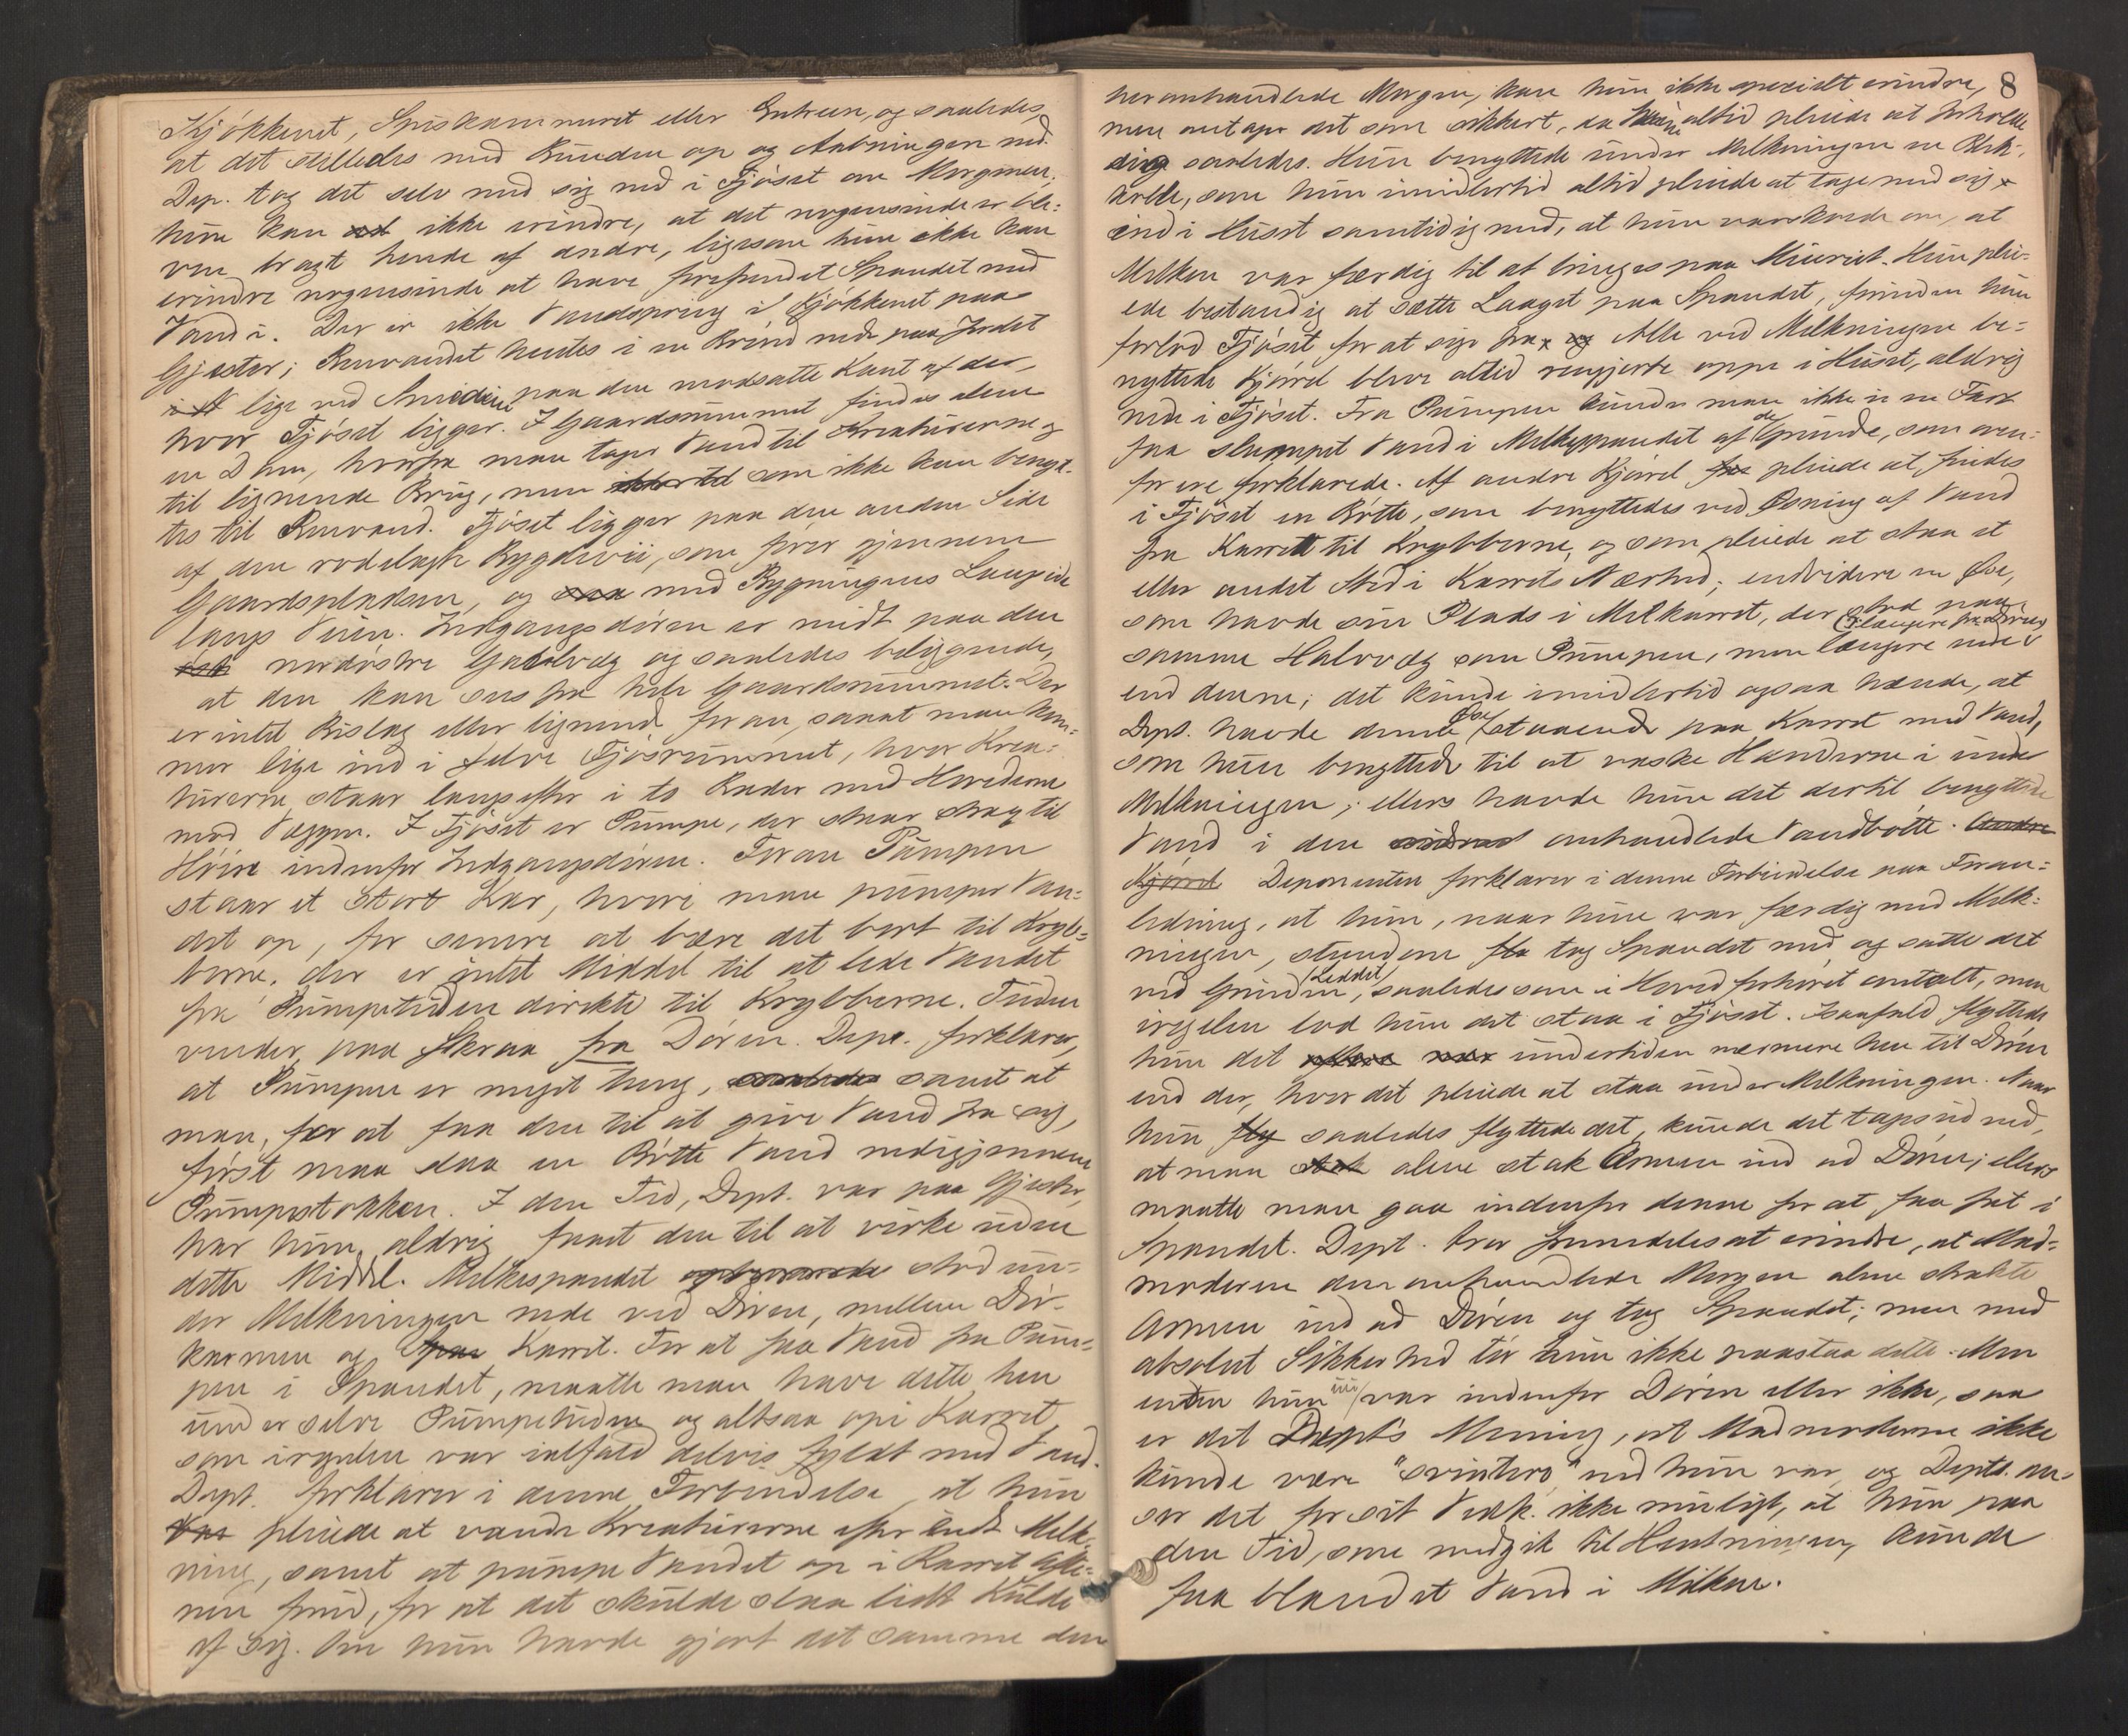 Kjøkkenet, Spiskammeret eller Entreen, og saaledes,
at det stilledes med Bunden op og Aabningen ned.
Dep. tog det selv med sig ned i Fjøset om Morgenen;
hun kan ikke erindre, at det nogensinde er ble-
ven bragt hende af andre, ligesom hun ikke kan
erindre nogensinde at have forefundet Spandet med
Vand i. Der er ikke Vandspring i Kjøkkenet paa
Gjester; Renvandet hentes i en Brønd nede paa Jordet
lige ved Smedien paa den modsatte Kant af der,
hvor Fjøset ligger. I Gaardsrummet findes alene
en Dam, hvorfra man tager Vand til Kreaturerne og
til lignende Brug, men som ikke kan benyt-
tes til Renvand. Fjøset ligger paa den anden Side
af den rodelagte Bygdevei, som fører gjennem
Gaardspladsen, og med Bygningens Langside
langs Veien. Indgangsdøren er midt paa den
nordøstre Gavlvæg og saaledes beliggende,
at den kan sees fra hele Gaardsrummet. Der
er intet Bislag eller lignende foran, saaat man kom-
mer lige ind i selve Fjøsrummet, hvor Krea-
turerne staar langsefter i to Rader med Hovederne
mod Væggen. I Fjøset er Pumpe, der staar strax til
Høire indenfor Indgangsdøren. Foran Pumpen
staar et stort Kar, hvori man pumper Van-
det op, for senere at bære det bort til Kryb-
berne, der er intet Middel til at lede Vandet
fra Pumpetuden direkte til Krybberne. Tuden
vender paa Skraa fra Døren. Dept. forklarer,
at Pumpen er meget tung, samt at
man, for at faa den til at give Vand fra sig,
først maa slaa en Bøtte Vand nedigjennem
Pumpestokken. I den Tid, Dept. var paa Gjester,
har hun aldrig faaet den til at virke uden
dette Middel. Melkespandet stod un-
der Melkningen nede ved Døren, mellem Dør-
karmen og Karret. For at faa Vand fra Pum-
pen i Spandet, maatte man have dette hen
under selve Pumpetuden og altsaa opi Karret,
som iregelen var ialfald delvis fyldt med Vand.
Dept. forklarer i denne Forbindelse, at hun
pleiede at vande Kreaturerne efter endt Melk-
ning, samt at pumpe Vandet op i Karret Afte-
nen forud, for at det skulde slaa lidt Kulde
af sig. Om hun havde gjort det samme den
8
heromhandlede Morgen, kan hun ikke specielt erindre,
men antager det som sikkert, da hun altid pleiede at forholde
sig saaledes. Hun benyttede under Melkningen en Blik-
kolle, som hun imidlertid altid pleiede at tage med sig
ind i Huset samtidig med, at hun varskoede om, at
Melken var færdig til at bringes paa Meieriet. Hun plei-
ede bestandig at sætte Laaget paa Spandet, førinden hun
forlod Fjøset for at sige fra. Alle ved Melkningen be-
nyttede Kjørrel blev altid rengjorte oppe i Huset, aldrig
nede i Fjøset. Fra Pumpen kunde man ikke i en Fart
faa slumpet Vand i Melkespandet af de Grunde, som oven-
for ere forklarede. Af andre Kjørrel pleiede at findes
i Fjøset en Bøtte, som benyttedes ved Øsning af Vand
fra Karret til Krybberne, og som pleiede at staa et
eller andet Sted i Karrets Nærhed; endvidere en Øse,
som havde sin Plads i Melkarret, der stod paa
samme Halvvæg som Pumpen, men længere nede (længere fra Døren)
end denne; det kunde imidlertid ogsaa hænde, at
Dept. havde denne Øse staaende paa Karret med Vand,
som hun benyttede til at vaske Hænderne i under
Melkningen; ellers havde hun det dertil benyttede
Vand i den omhandlede Vandbøtte.
Deponenten forklarer i denne Forbindelse paa Foran-
ledning, at hun, naar hun var færdig med Melk-
ningen, stundom tog Spandet med og satte det
ved Grinden (Leddet), saaledes som i Hovedforhøret omtalt, men
iregelen lod hun det staa i Fjøset. Isaafald flyttede
hun det undertiden nærmere hen til Døren
end der, hvor det pleiede at staa under Melkningen. Naar
hun saaledes flyttede det, kunde det tages ud ved,
at man alene stak Armen ind ad Døren; ellers
maatte man gaa indenfor denne for at faa fat i
Spandet. Dept. tror fremdeles at erindre, at Mad-
moderen den omhandlede Morgen alene strakte
Armen ind ad Døren og tog Spandet; men med
absolut Sikkerhed tør hun ikke paastaa dette. Men
enten hun nu var indenfor Døren eller ikke, saa
er det Dept's Mening, at Madmoderen ikke
kunde være "svintero" ved hun var, og Dept. an-
ser det for sit Vedk. ikke muligt, at hun paa
den Tid, som medgik til Hentningen, kunde
faa blandet Vand i Melken.